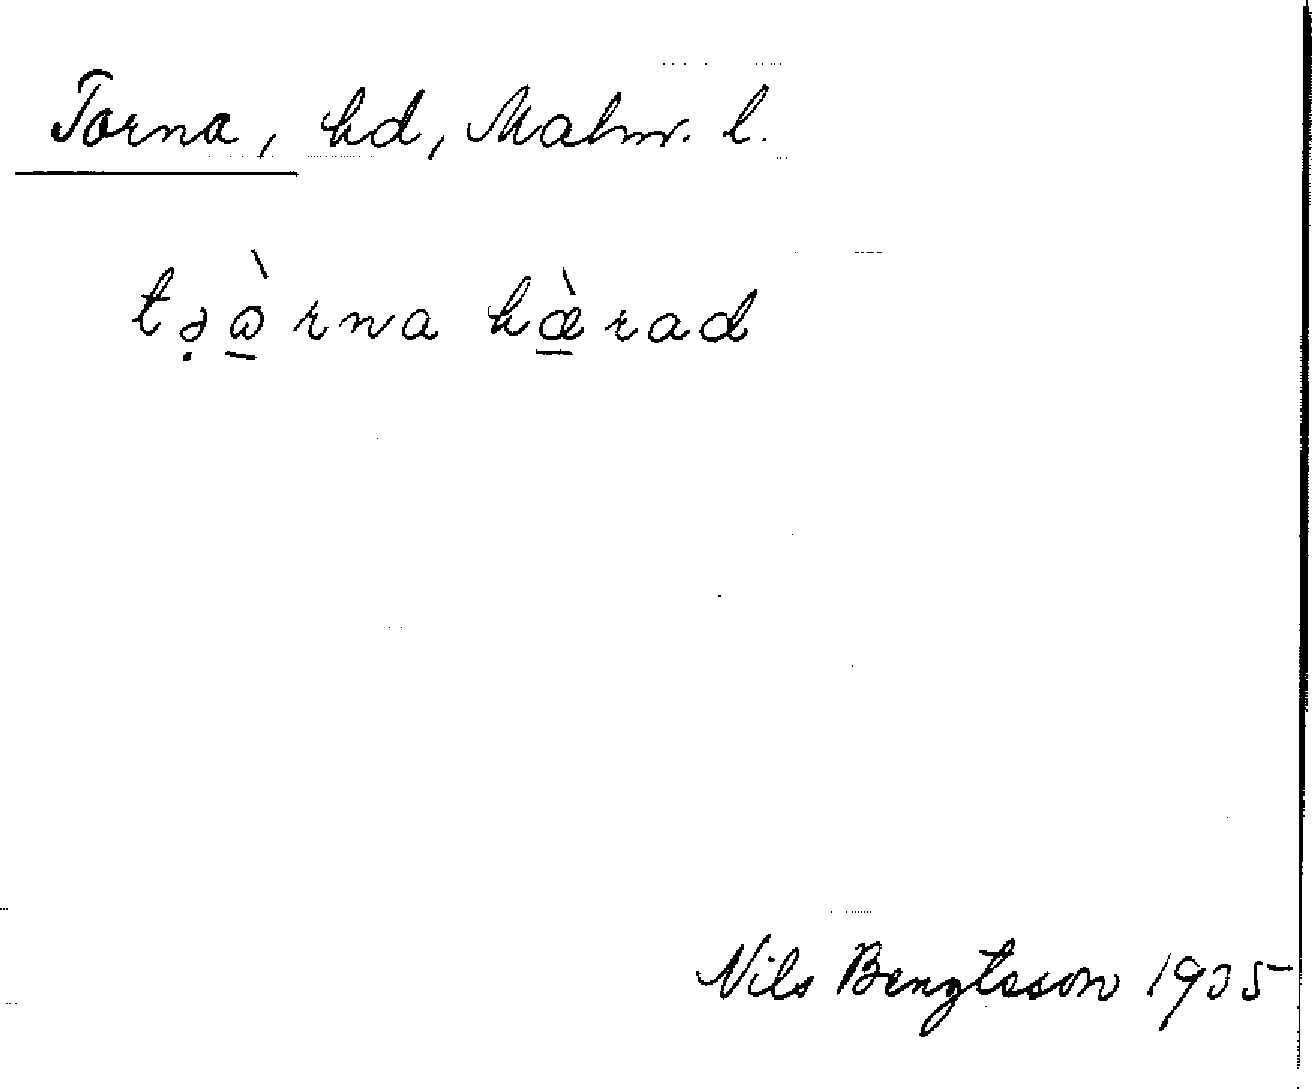 Torna, hd, Malm. l.
tə̣ɷ̠̀rna hæ̠̀rad
Nils Bengtsson 1935